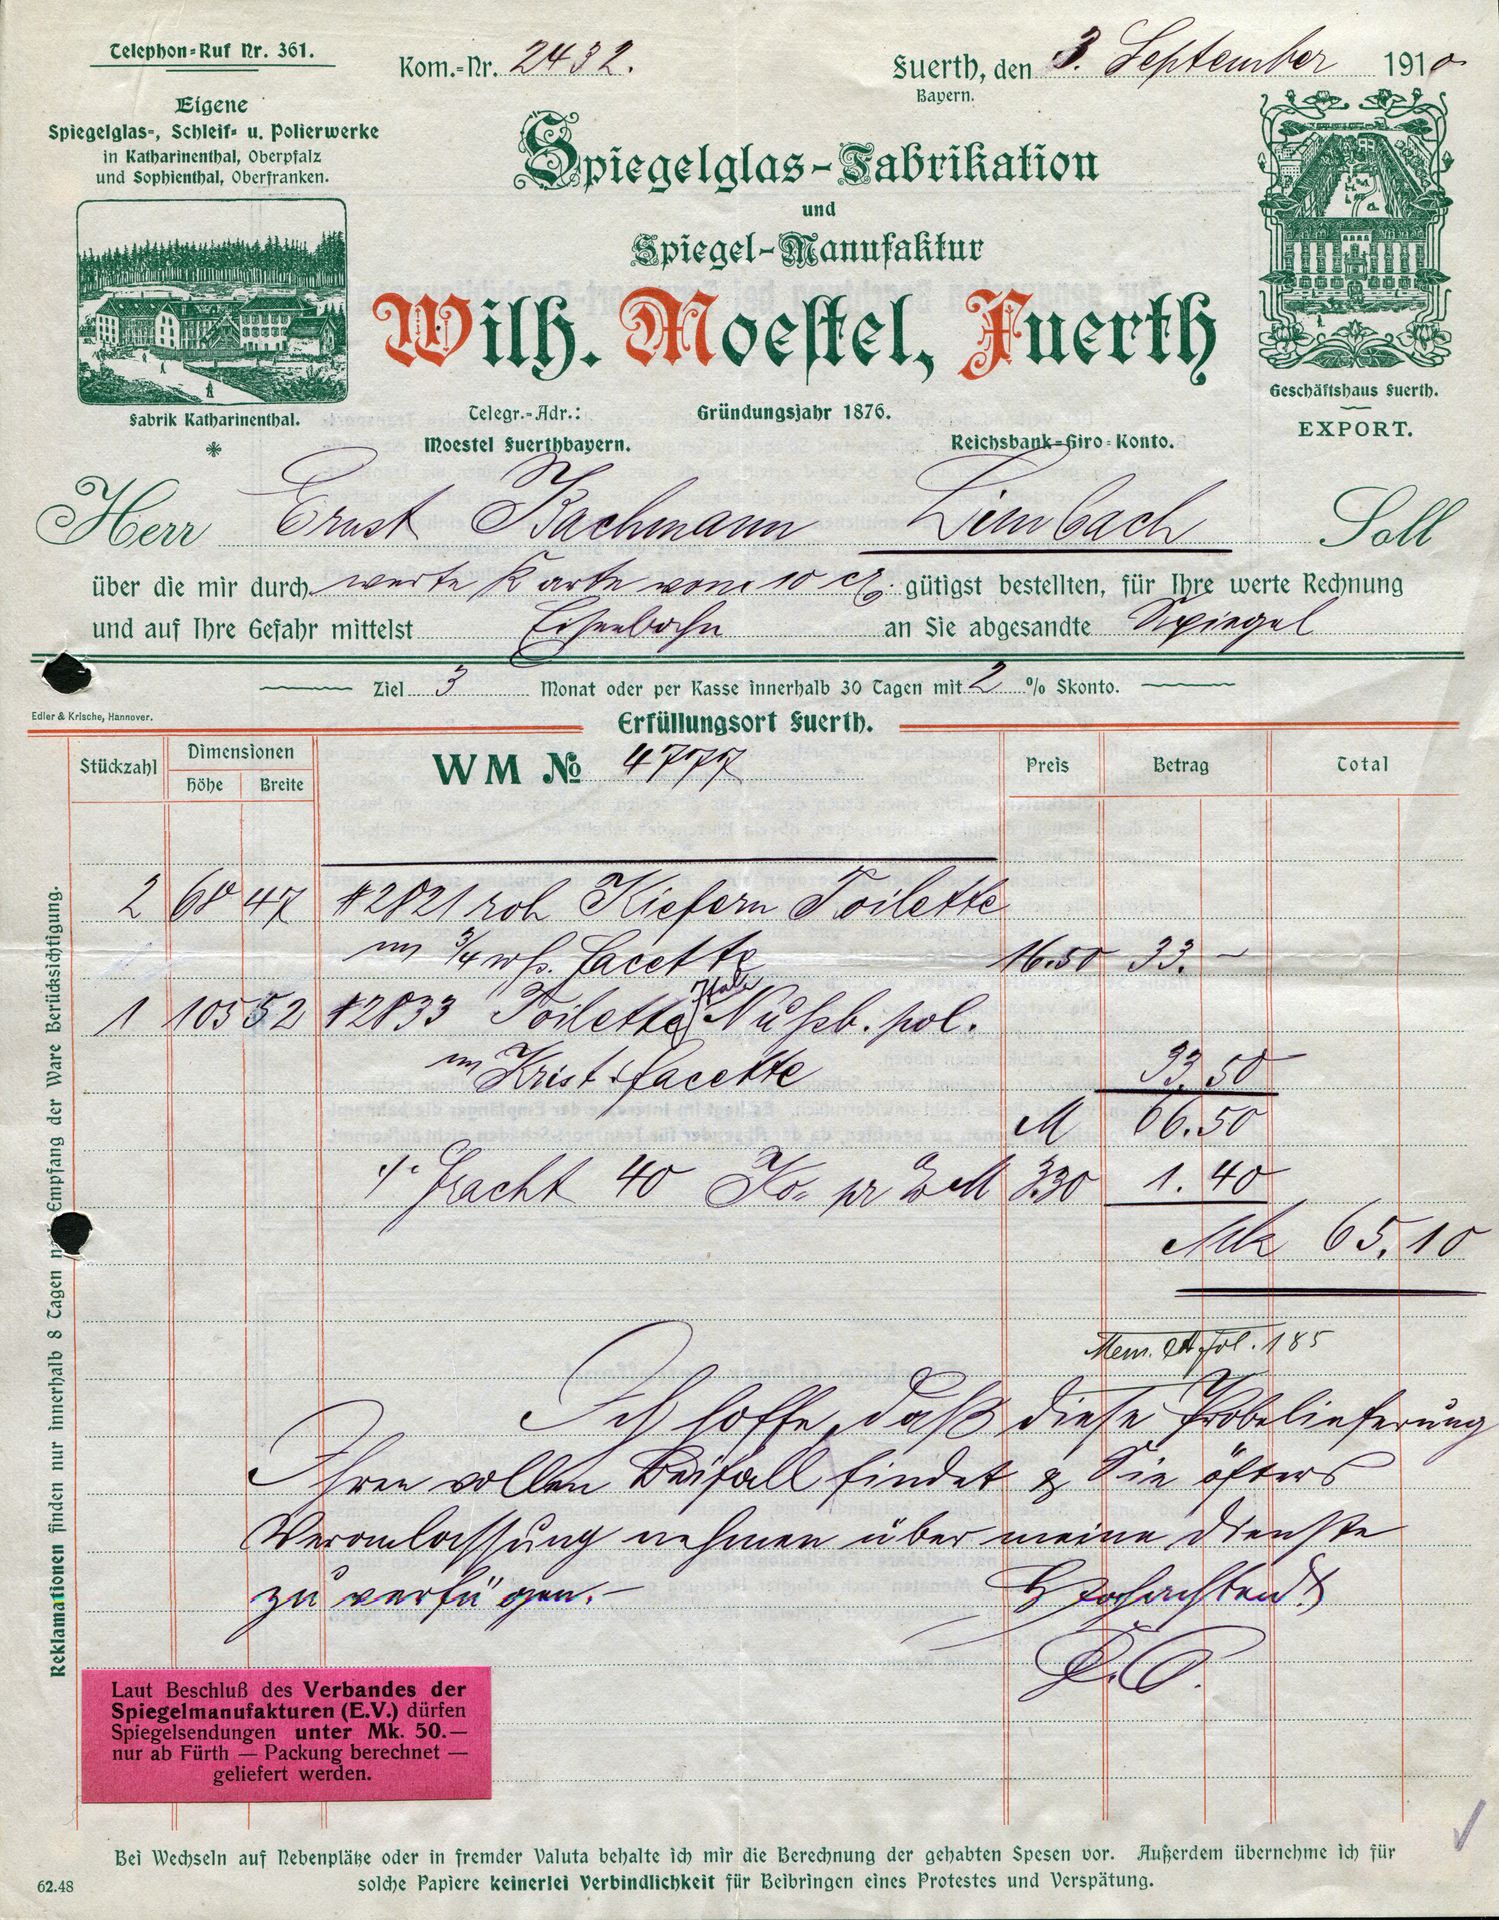 Telephon-Ruf Nr. 361.
Kom.-Nr. 2432.
Fuerth, den 3. September 1910
Bayern.
Eigene
Spiegelglas-, Schleif- u. Polierwerke
in Katharinenthal, Oberpfalz
und Sophienthal, Oberfranken.
Spiegelglas-Fabrikation
und
Spiegel-Manufaktur
Wilh. Moestel, Fuerth
Fabrik Katharinenthal.
Telegr.-Adr.:
Moestel Fuerthbayern.
Gründungsjahr 1876.
Reichsbank-Giro-Konto.
Geschäftshaus Fuerth.
EXPORT.
Herr Ernst Bachmann Limbach Soll
über die mir durch werte Karte vom 10 gütigst bestellten, für Ihre werte Rechnung
und auf Ihre Gefahr mittelst Eisenbahn an Sie abgesandte Spiegel
Ziel 3 Monat oder per Kasse innerhalb 30 Tagen mit 2 % Skonto.
Edler & Krische, Hannover.
Erfüllungsort Fuerth.
Stückzahl Dimensionen WM No 4777 Preis Betrag Total
Höhe Breite
2 68 47 #2821 roh Kiefern Toilette
m 3/4 wß. Facette 16.50 33.–
1 105 52 #2833 Toilette Nußb. pol.
m Krist. Facette 33.50
M 66.50
./. Fracht 40 Ko pr % M 3.30 1.40
Mk 65.10
Mem. A fol. 185
Ich hoffe, daß diese Probelieferung
Ihren vollen Beifall findet & Sie öfters
Veranlassung nehmen über meine Dienste
zu verfügen.–
Hochachtend!
Reklamationen finden nur innerhalb 8 Tagen nach Empfang der Ware Berücksichtigung.
Laut Beschluß des Verbandes der
Spiegelmanufakturen (E.V.) dürfen
Spiegelsendungen unter Mk. 50.—
nur ab Fürth — Packung berechnet —
geliefert werden.
Bei Wechseln auf Nebenplätze oder in fremder Valuta behalte ich mir die Berechnung der gehabten Spesen vor. Außerdem übernehme ich für
solche Papiere keinerlei Verbindlichkeit für Beibringen eines Protestes und Verspätung.
62.48